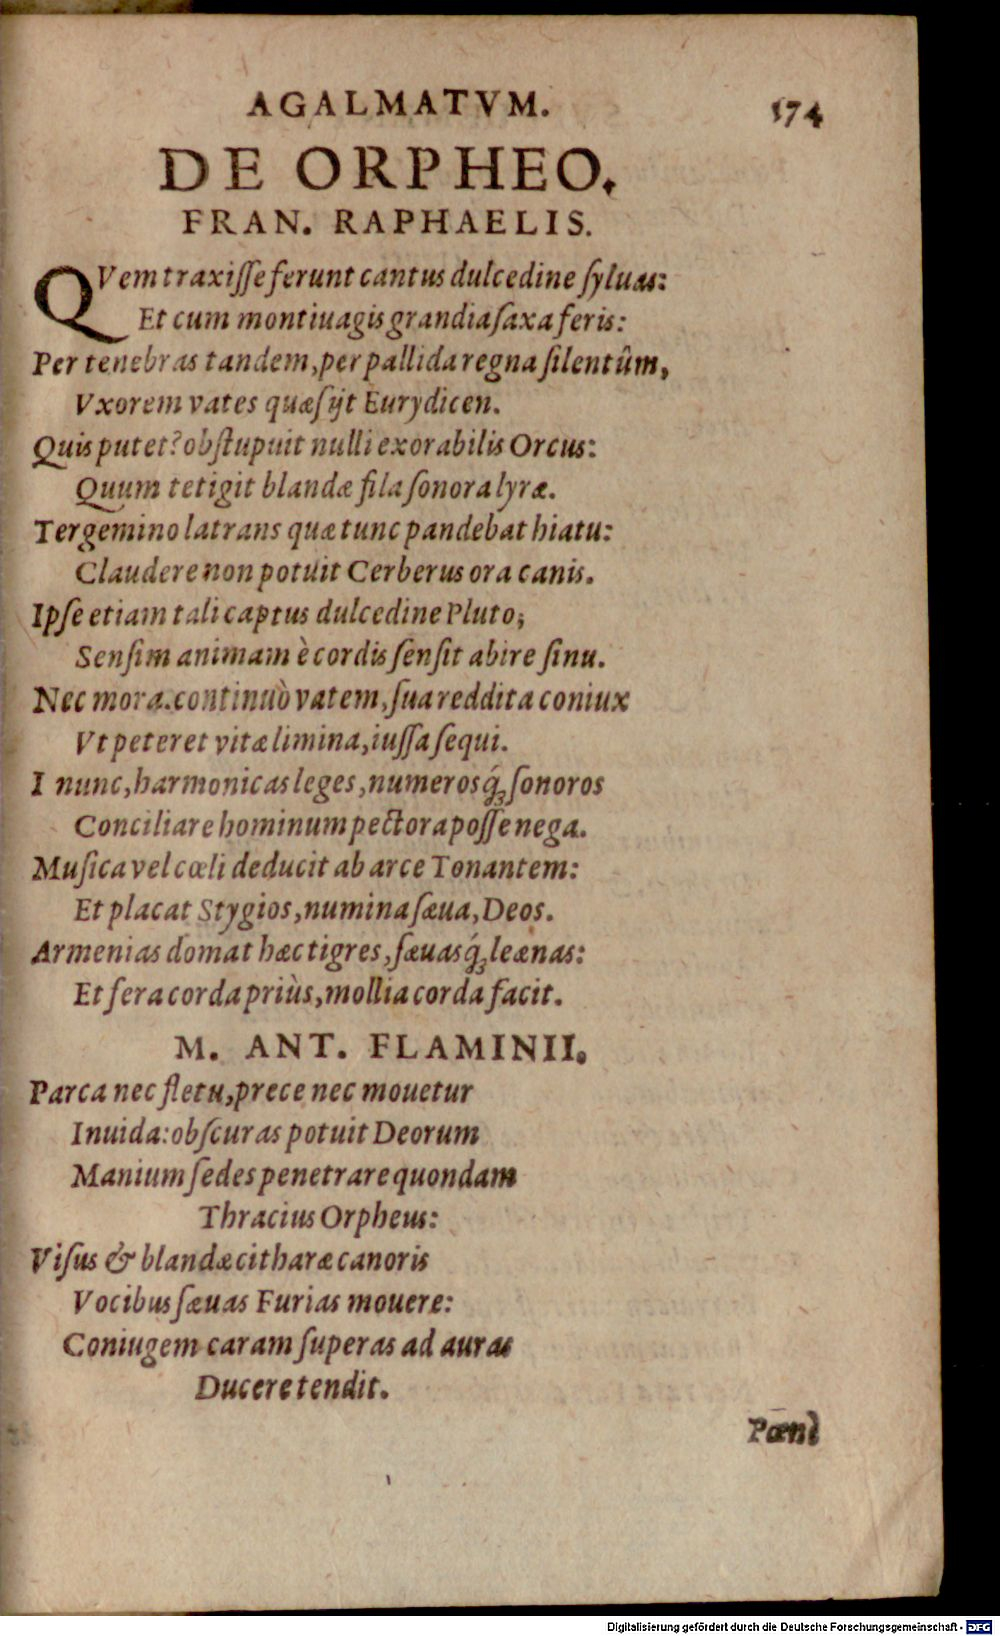 AGALMATVM. 174
DE ORPHEO.
FRAN. RAPHAELIS.
QVem traxiſſe ferunt cantus dulcedine ſyluas:
Et cum montiuagis grandia ſaxa feris:
Per tenebras tandem, per pallida regna ſilentûm,
Vxorem vates quæſijt Eurydicen.
Quis putet? obſtupuit nulli exorabilis Orcus:
Quum tetigit blandæ fila ſonora lyræ.
Tergemino latrans quæ tunc pandebat hiatu:
Claudere non potuit Cerberus ora canis.
Ipſe etiam tali captus dulcedine Pluto;
Senſim animam è cordis ſenſit abire ſinu.
Nec mora. continuò vatem, ſua reddita coniux
Vt peteret vitæ limina, iuſſa ſequi.
I nunc, harmonicas leges, numerosq́ꝫ ſonoros
Conciliare hominum pectora poſſe nega.
Muſica vel cœli deducit ab arce Tonantem:
Et placat Stygios, numina ſæua, Deos.
Armenias domat hæc tigres, ſæuasq́ꝫ leænas:
Et fera corda priùs, mollia corda facit.
M. ANT. FLAMINII.
Parca nec fletu, prece nec mouetur
Inuida: obſcuras potuit Deorum
Manium ſedes penetrare quondam
Thracius Orpheus:
Viſus & blandæ citharæ canoris
Vocibus ſæuas Furias mouere:
Coniugem caram ſuperas ad auras
Ducere tendit.
Pœni
Digitalisierung gefördert durch die Deutsche Forschungsgemeinschaft - DFG